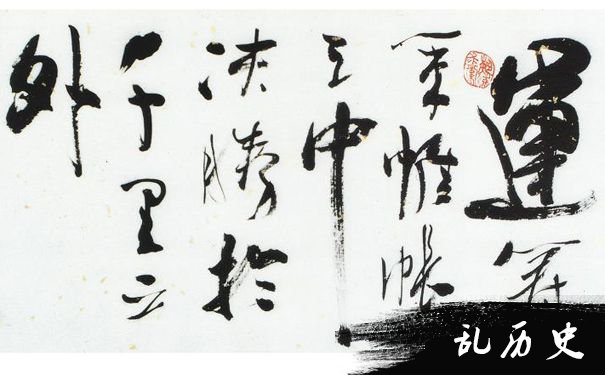 運籌
策帷帳
之中
决勝於
千里之
外
乱历史